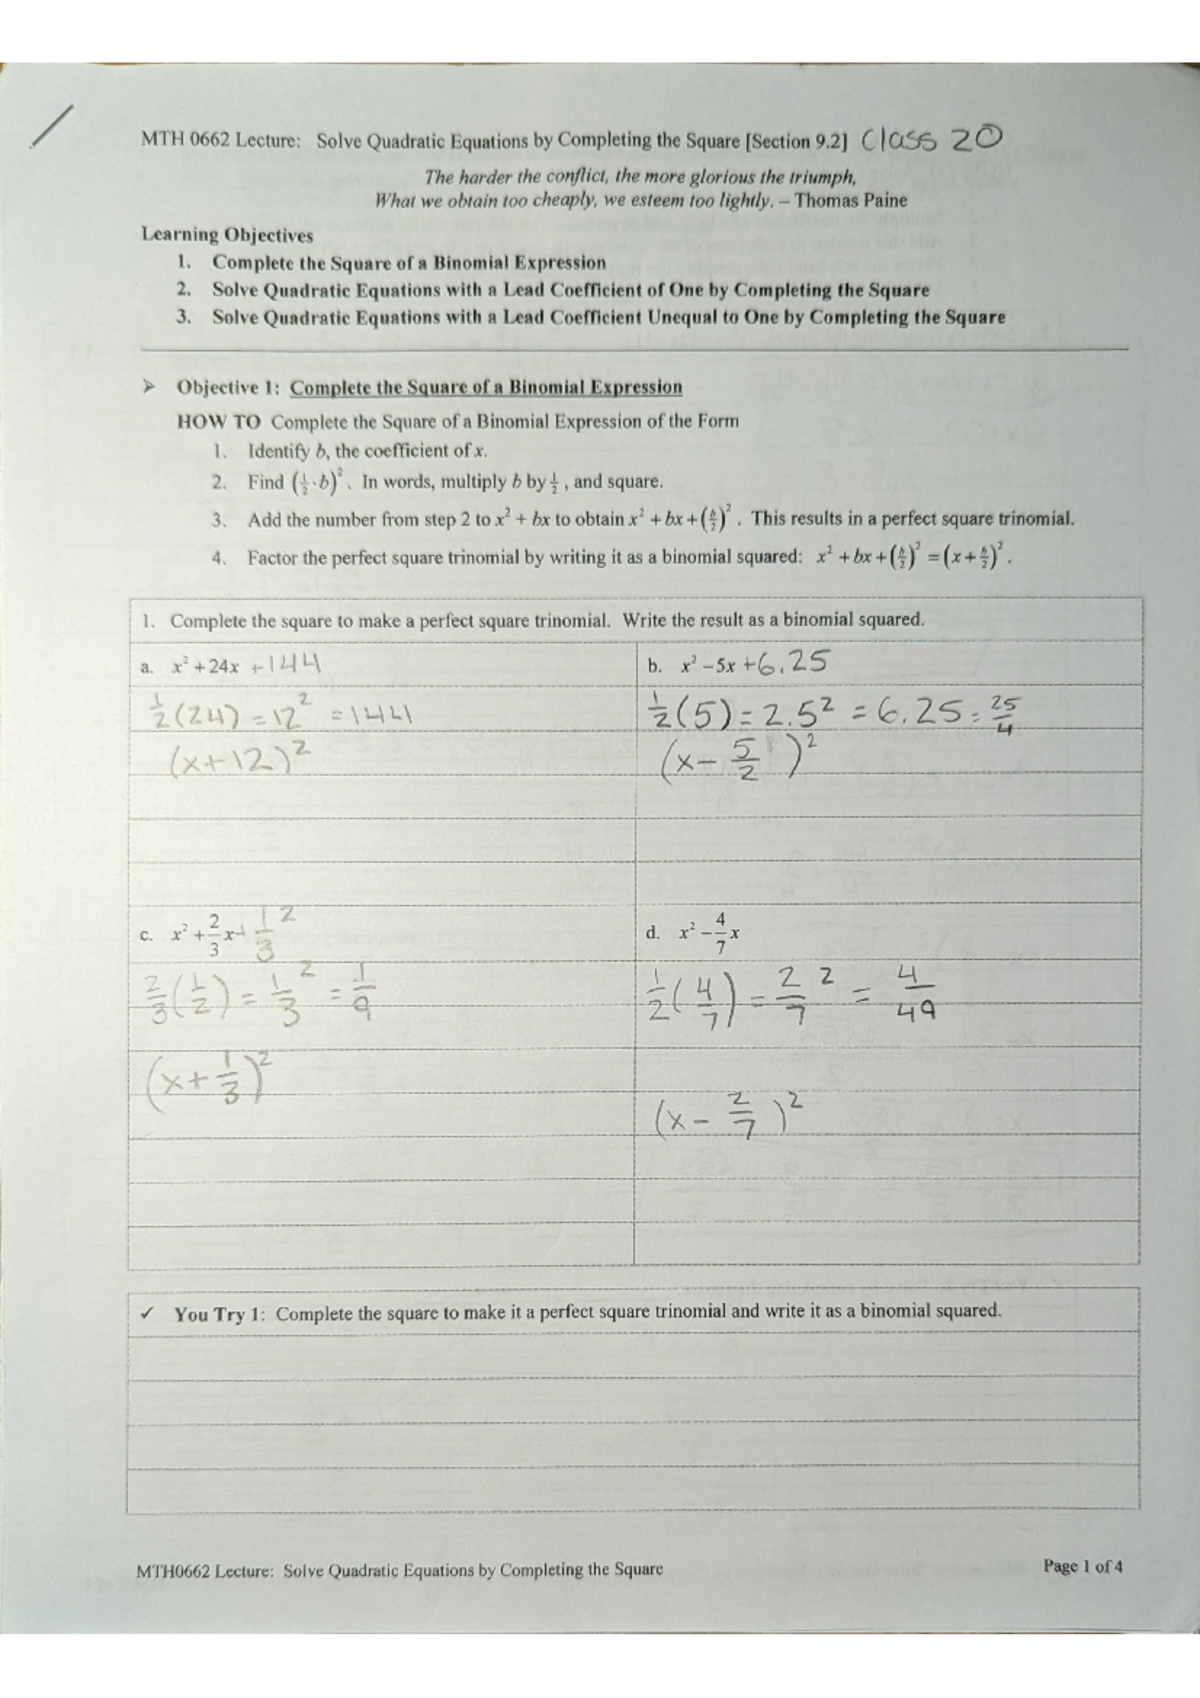 MTH 0662 Lecture: Solve Quadratic Equations by Completing the Square [Section 9.2] Class 20
The harder the conflict, the more glorious the triumph,
What we obtain too cheaply, we esteem too lightly. – Thomas Paine
Learning Objectives
1. Complete the Square of a Binomial Expression
2. Solve Quadratic Equations with a Lead Coefficient of One by Completing the Square
3. Solve Quadratic Equations with a Lead Coefficient Unequal to One by Completing the Square
➢ Objective 1: Complete the Square of a Binomial Expression
HOW TO Complete the Square of a Binomial Expression of the Form
1. Identify b, the coefficient of x.
2. Find (1/2 · b)². In words, multiply b by 1/2, and square.
3. Add the number from step 2 to x² + bx to obtain x² + bx + (b/2)². This results in a perfect square trinomial.
4. Factor the perfect square trinomial by writing it as a binomial squared: x² + bx + (b/2)² = (x + b/2)².
1. Complete the square to make a perfect square trinomial. Write the result as a binomial squared.
a. x² + 24x + 144
1/2 (24) = 12² = 144
(x + 12)²
b. x² – 5x + 6.25
1/2 (5) = 2.5² = 6.25 = 25/4
(x – 5/2)²
c. x² + 2/3 x + 1/3²
2/3 (1/2) = 1/3² = 1/9
(x + 1/3)²
d. x² – 4/7 x
1/2 (4/7) = 2/7² = 4/49
(x – 2/7)²
✓ You Try 1: Complete the square to make it a perfect square trinomial and write it as a binomial squared.
MTH0662 Lecture: Solve Quadratic Equations by Completing the Square
Page 1 of 4